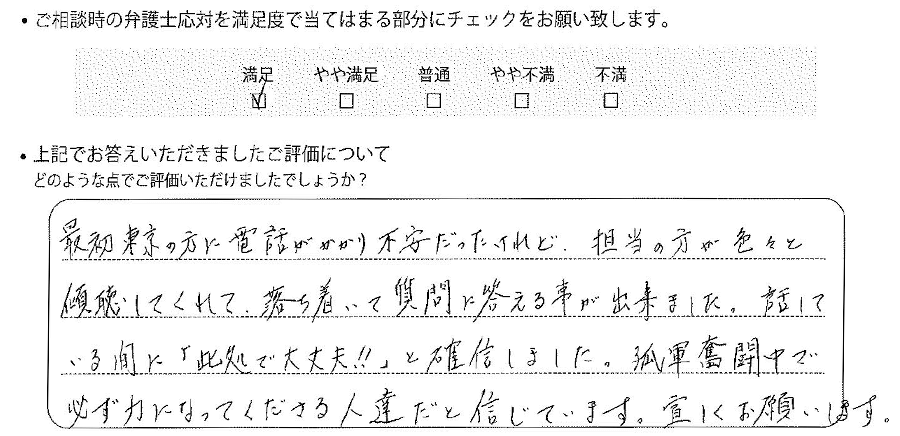 ・ご相談時の弁護士応対を満足度で当てはまる部分にチェックをお願い致します。
満足 やや満足 普通 やや不満 不満
・上記でお答えいただきましたご評価について
どのような点でご評価いただけましたでしょうか？
最初東京の方に電話がかかり不安だったけれど、担当の方が色々と
傾聴してくれて、落ち着いて質問に答える事が出来ました。話して
いる間に「此処で大丈夫!!」と確信しました。孤軍奮闘中で
必ず力になってくださる人達だと信じています。宜しくお願いします。